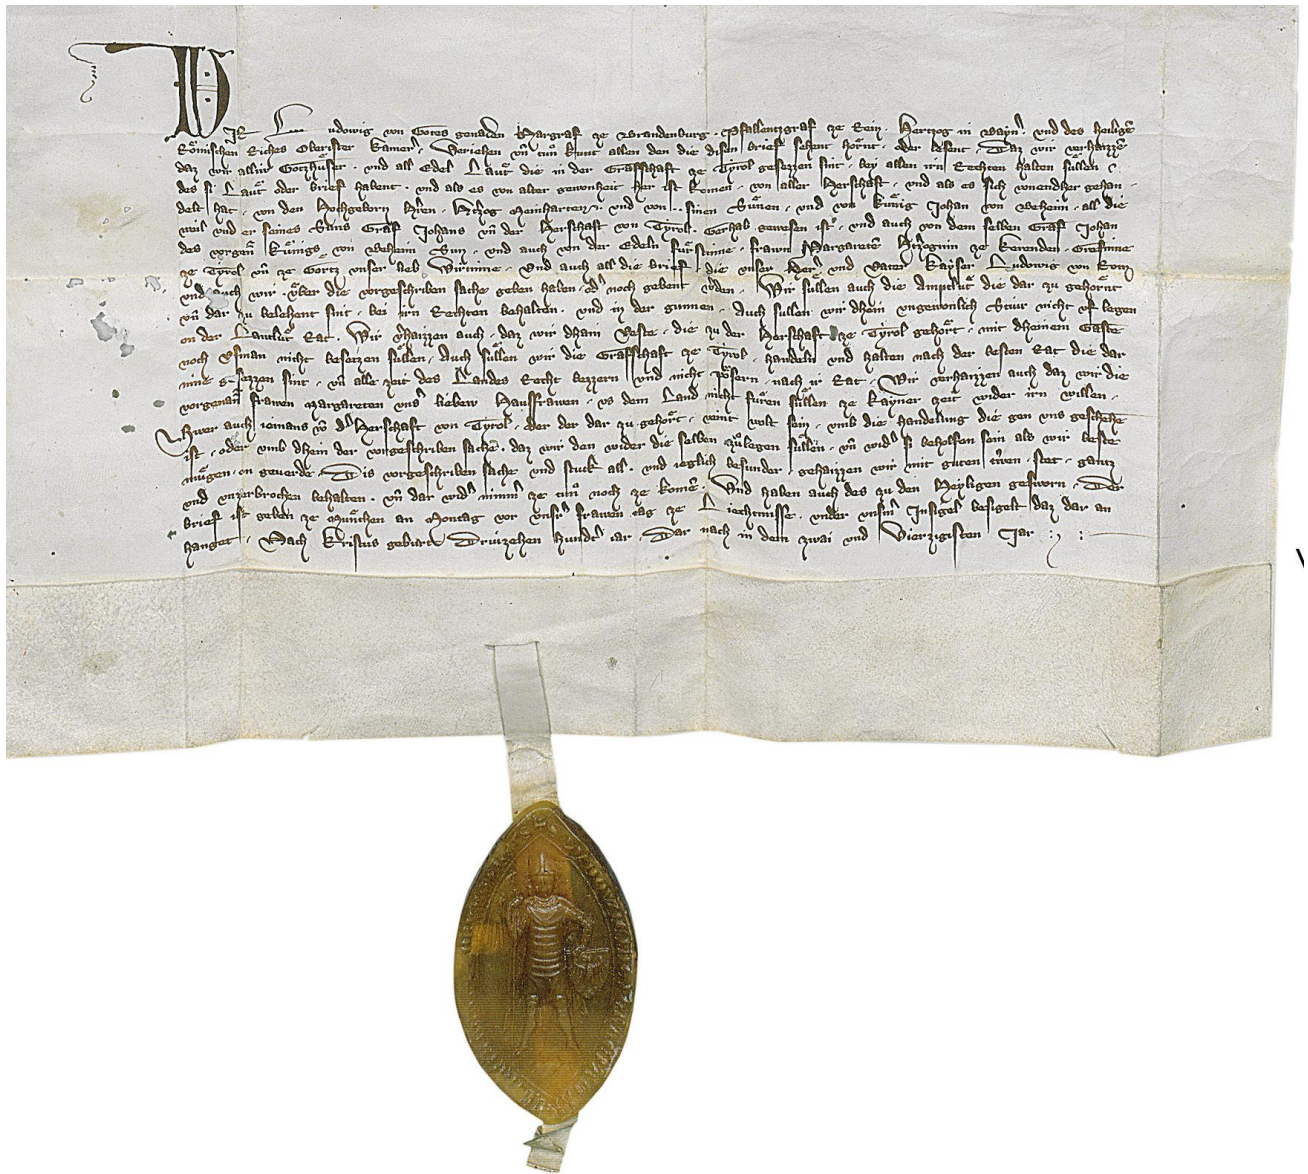 WIR Ludowig von Gotes genaden Margraf ze Brandenburg . Pfallentzgraf ze Rein . Hertzog in Bayrn . vnd des heiligen
Römischen Riches Oberister Kamerer . Veriehen vn̄ tun kunt allen den die disen brief sehent hörnt . oder lesent . Daz wir verhaizzen
daz wir alliu Gotzhüser . vnd all Edel Laut die in der Graffschaft ze Tyrol gesezzen sint . bey allen irn Rechten halten süllen
des si Laut oder brief habent . vnd als es von alter gewonheit her ist komen . von aller Herschaft . vnd als es sich vonendher gehan-
delt hat . von den Hochgeborn Hren . Hertzog Meinharten . vnd von . . sinen Sünen . vnd von Künig Johan von Beheim . all die
weil vnd er seines Suns Graf Johans vn̄ der Herschaft von Tyrol . Gerhab gewesen ist . vnd auch von dem selben Graf Johan
des vorgen̄ Künigs von Beheim Sun . vnd auch von der Edeln Fürstinne . frawn Margareten Hertzoginn ze Kernden . Grefinne
ze Tyrol vn̄ ze Gortz vnser lieb Wirtinne . Vnd auch all die brief die vnser Herr vnd Vater Kayser Ludowig von Rom
vnd auch wir vber die vorgeschriben sache geben haben . oder noch gebent werden . Wir süllen auch die Amptlüt die dar zu gehornt
vn̄ dar zu belehent sint . bei irn Rechten behalten . vnd in der gunnen . Auch sullen wir dhein vngewonlich Stiur nicht vf legen
on der Lantlüt Rat . Wir verhaizzen auch . daz wir dhain Veste . die zu der Herschaft ze Tyrol gehört . mit dheinem Gaste
noch Vsman nicht besetzen süllen . Auch süllen wir die Graffschaft ze Tyrol . handeln vnd halten nach der besten Rat die dar
inne gesezzen sint . vn̄ alle zeit des Landes Recht bezzern vnd nicht pösern . nach ir Rat . Wir verhaizzen auch daz wir die
vorgenan̄ frawen Margareten vnser lieben Hausfrawen . vs dem Land nicht füren süllen ze kayner zeit wider irn willen .
Swer auch iemans vō der Herschaft von Tyrol . oder der dar zu gehört . veint wolt sein . vmb die handelung die gen vns geschehen
ist . oder vmb dhein der vorgeschriben sache . daz wir den wider die selben zulegen süllen . vn̄ wider si beholfen sein als wir beste
mügen . on geuerde . Dis vorgeschriben sache vnd stuk all . vnd ieglich besunder . gehaizzen wir mit guten triwen . stet . gantz
vnd vnzerbrochen behalten . vn̄ dar wider nimmer ze tun noch ze komen . Vnd haben auch des zu den Heyligen gesworn . Der
brief ist geben ze München an Montag vor vnsrer frawen tag ze Liechtmisse . vnder vnserm Insigel besigelt daz dar an
hanget . Nach Kristus geburt Driuzehen hundert iar . Dar nach in dem zwai vnd Vierzigisten Jar